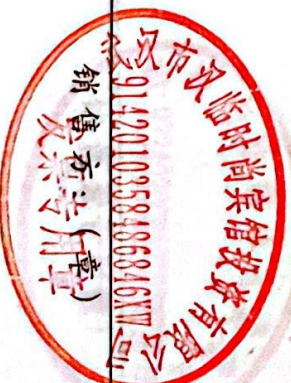 武汉市汉临时尚宾馆投资有限公司
9142010358486846XW
销售方:(章)
发票专用章